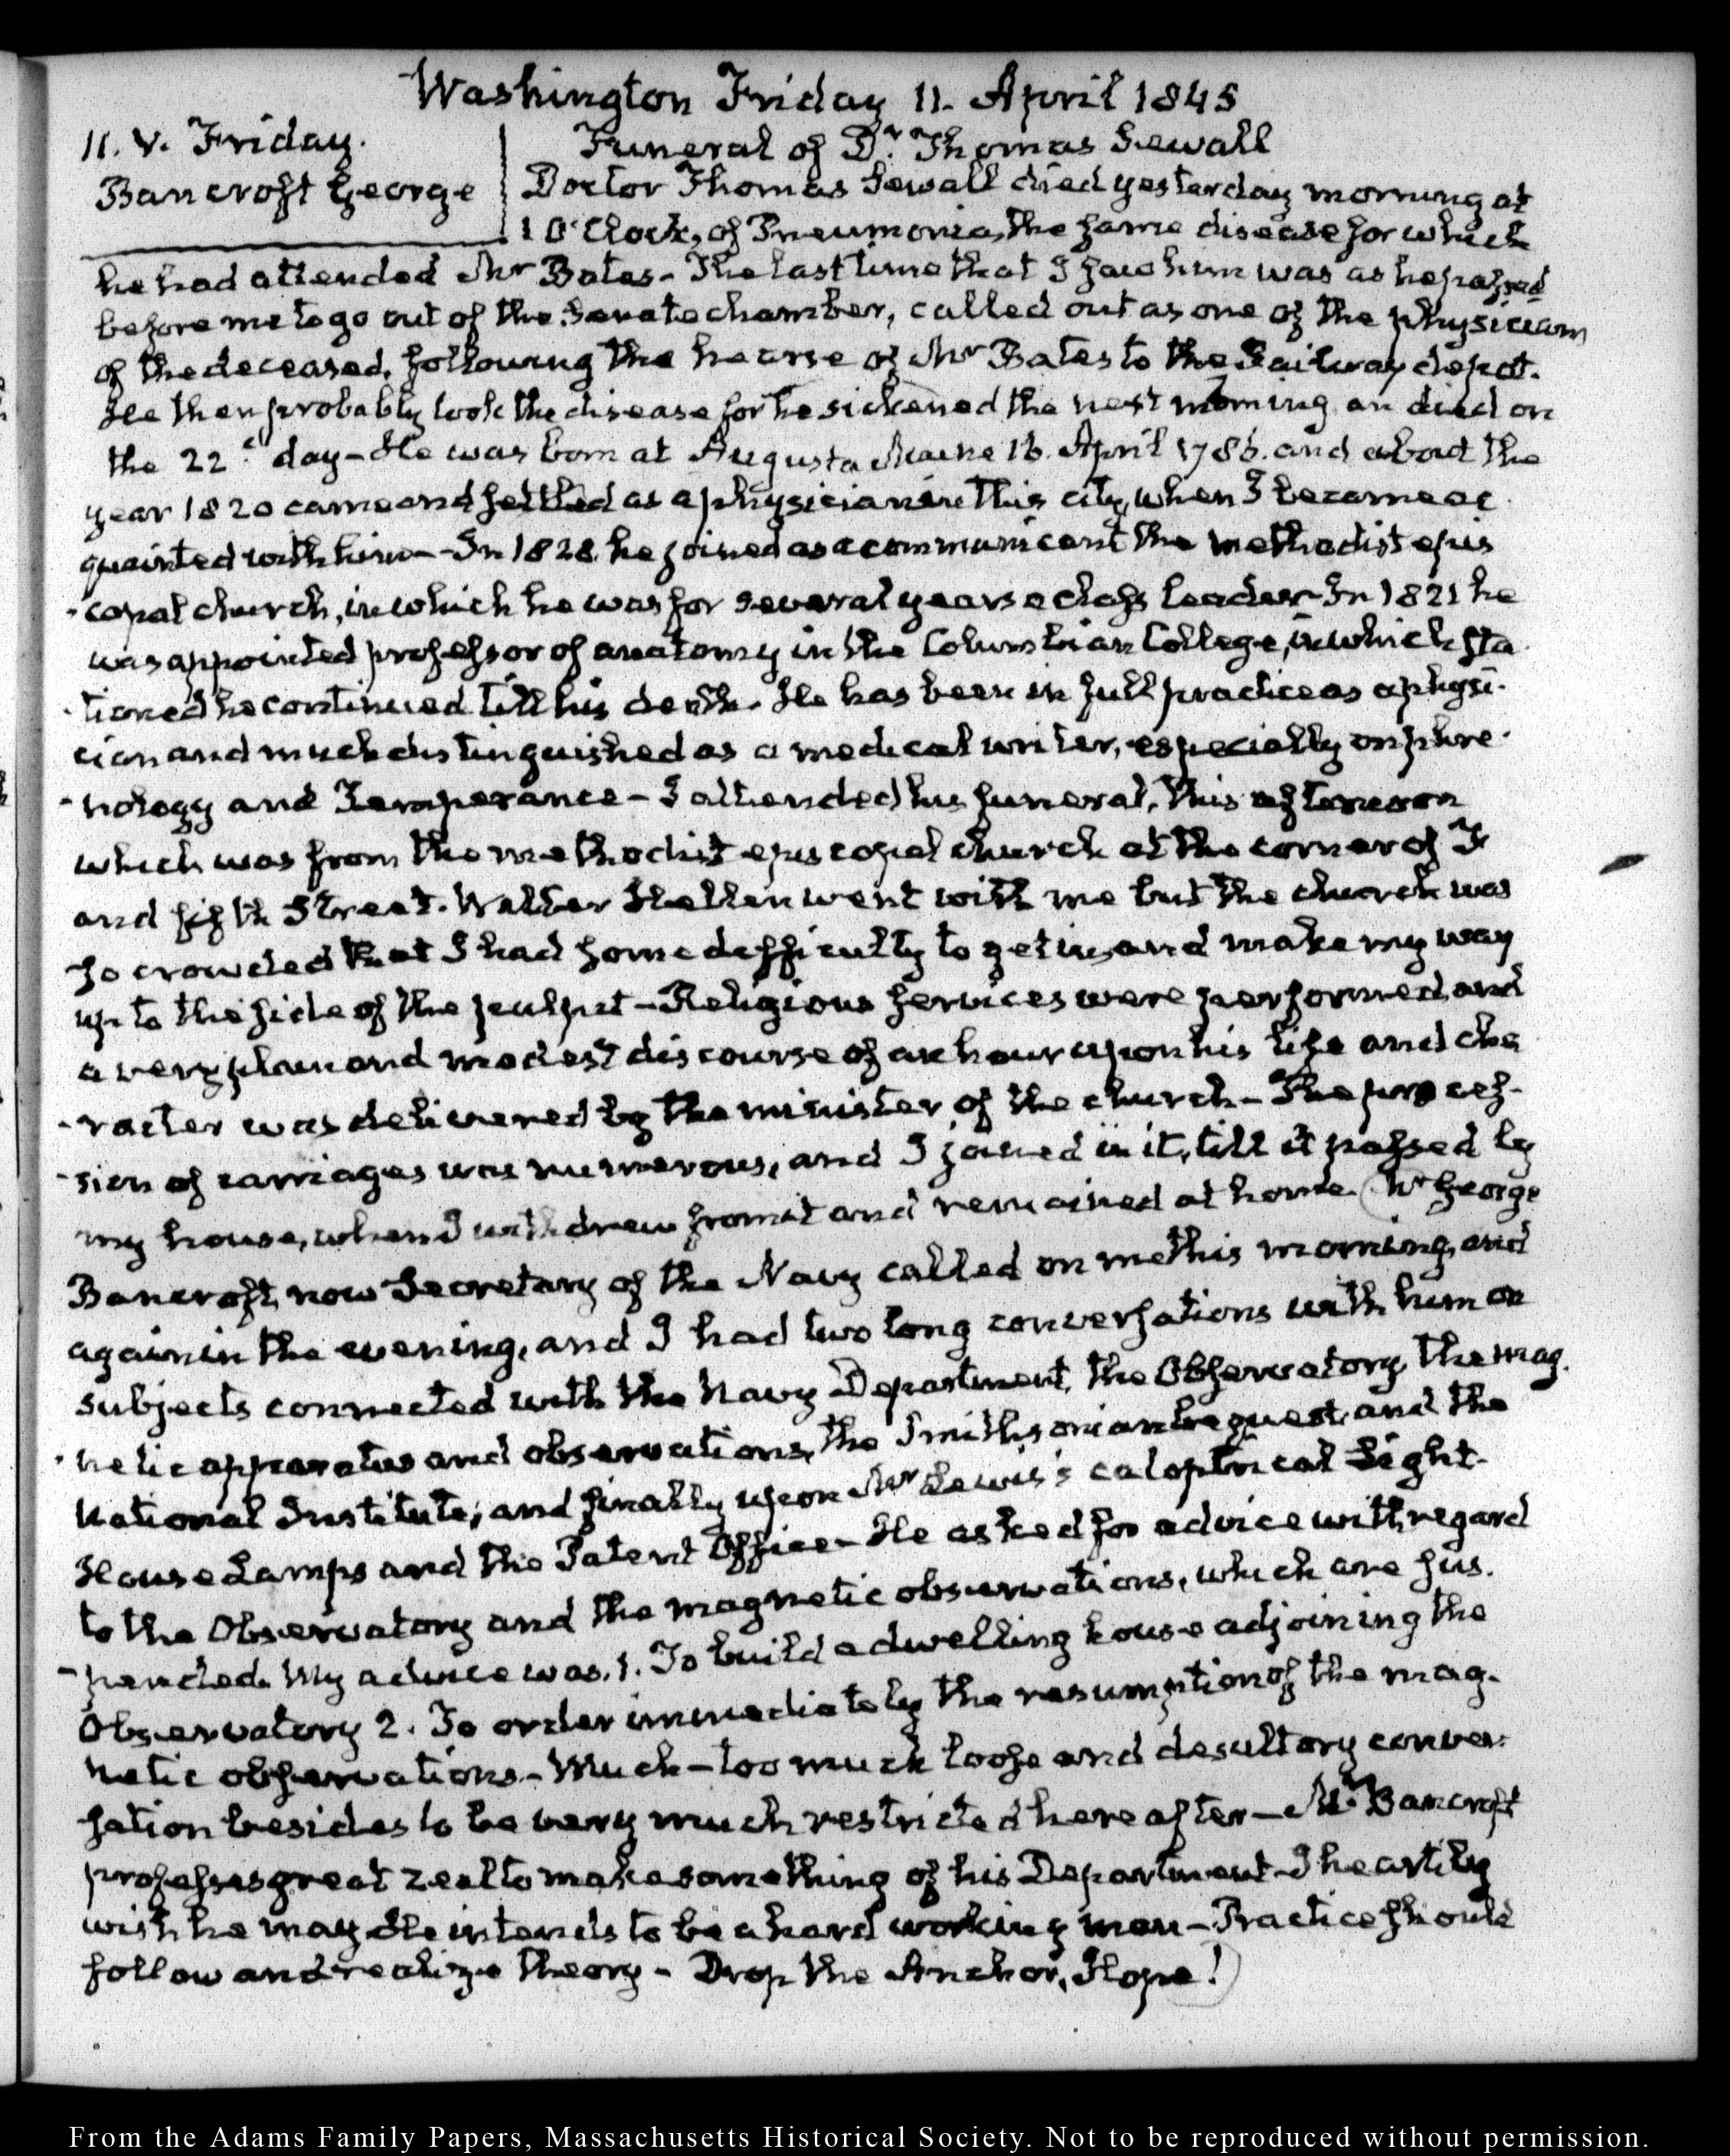 Washington Friday 11. April 1845
11. V. Friday.
Bancroft George
Funeral of Dr. Thomas Sewall
Doctor Thomas Sewall died yesterday morning at
1 O'Clock, of Pneumonia, the same disease for which
he had attended Mr Bates - The last time that I saw him was as he passed
before me to go out of the Senate chamber, called out as one of the physicians
of the deceased, following the hearse of Mr Bates to the Railway depot.
He then probably took the disease for he sickened the next morning an died on
the 22.d day - He was born at Augusta Maine 16. April 1786. and about the
year 1820 came and settled as a physician in this city, when I became ac
quainted with him - In 1828. he joined as a communicant the methodist epis
-copal church, in which he was for several years a class leader - In 1821 he
was appointed professor of anatomy in the Columbian College, in which sta
-tioned he continued till his death. He has been in full practice as a physi-
cian and much distinguished as a medical writer, especially on phre-
-nology and Temperance - I attended his funeral, this afternoon
which was from the methodist episcopal church at the corner of F
and fifth Street. Walter Hellen went with me but the church was
so crowded that I had some difficulty to get in, and make my way
up to the side of the pulpit - Religious services were performed, and
a very plain and modest discourse of an hour upon his life and cha
-racter was delivered by the minister of the church - The proces-
-sion of carriages was numerous, and I joined in it, till it passed by
my house, when I withdrew from it and remained at home. (Mr George
Bancroft, now Secretary of the Navy called on me this morning, and
again in the evening, and I had two long conversations with him on
subjects connected with the Navy Department, the Observatory, the mag-
-netic apparatus and observations, the Smithsonian bequest, and the
National Institute; and finally upon Mr Lewis's catoptrical Light-
House Lamps and the Patent Office - He asked for advice with regard
to the Observatory and the magnetic observations, which are sus-
-pended. My advice was. 1. To build a dwelling house adjoining the
Observatory 2. To order immediately the resumption of the mag-
netic observations - Much - too much loose and desultory conver-
sation besides to be very much restricted hereafter - Mr. Bancroft
professes great zeal to make something of his Department - I heartily
wish he may - He intends to be a hard working man - Practice should
follow and realize theory - Drop the Anchor, Hope!)
From the Adams Family Papers, Massachusetts Historical Society. Not to be reproduced without permission.